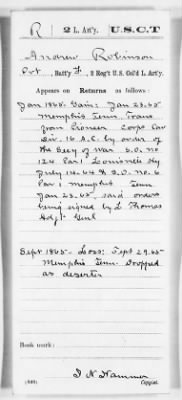 R | 2 L. Art'y. | U.S.C.T
Andrew Robinson
Pvt, Batt'y F, 2 Reg't U.S. Col'd L. Art'y.
Appears on Returns as follows:
Jan 1865. Gain: Jan 23.65
Memphis Tenn. Trans
from Pioneer Corps
Div. 16 A.C. by order of
the Secy of War S.O. No
124 Par 1 Louisville Ky
July 14.64 & S.O. No. 6
Par 1 Memphis Tenn
Jan 23.65, said orders
being signed by L Thomas
Adjt Genl
Sept 1865 - Loss: Sept 29.65
Memphis Tenn. Dropped
as deserter
Book mark:
Copyist.